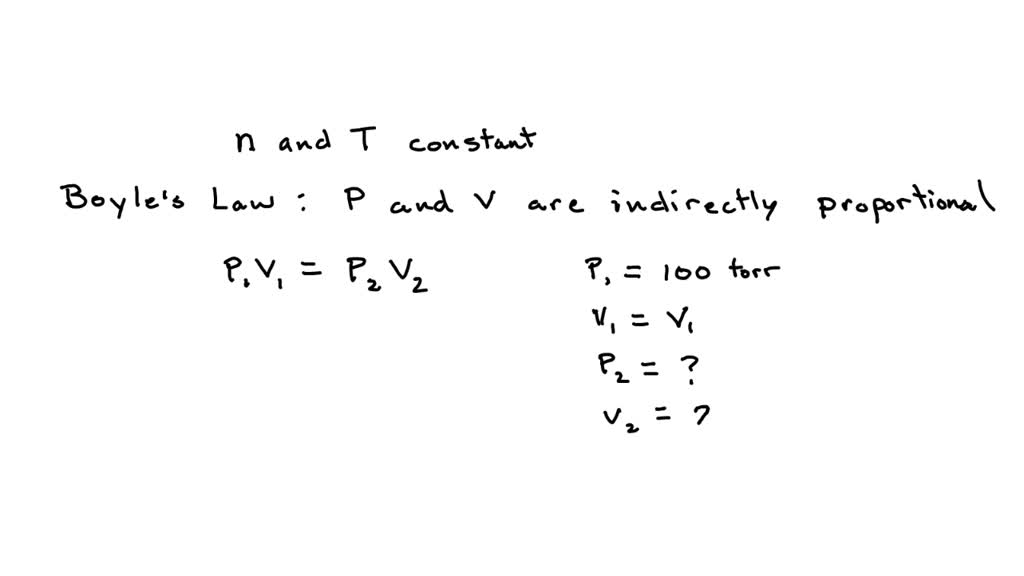 n and T constant
Boyle's Law : P and V are indirectly proportional
P₁V₁ = P₂V₂
P₁ = 100 torr
V₁ = V₁
P₂ = ?
V₂ = ?